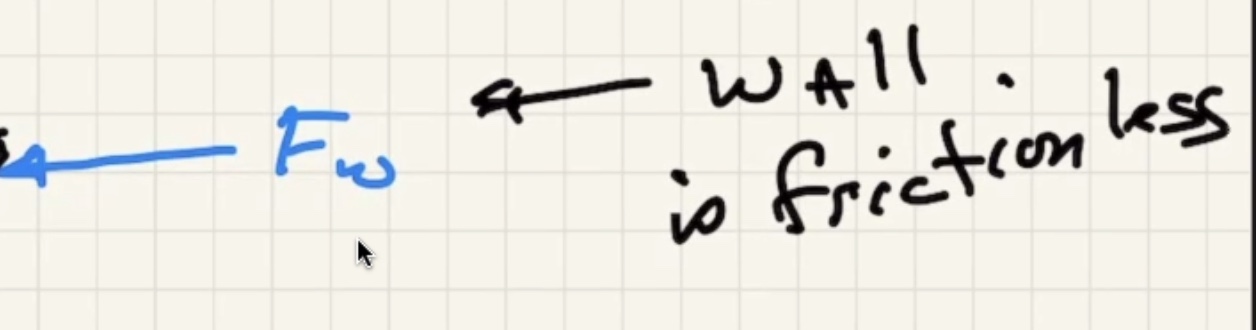 Fw
WAll
is frictionless